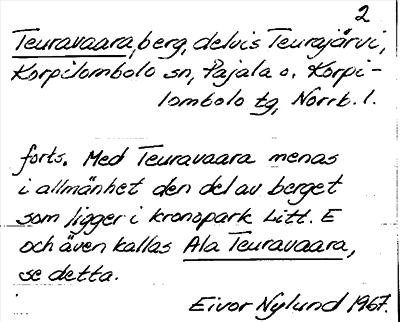 2
Teuravaara, berg, delvis Teurajärvi,
Korpilombolo sn, Pajala o. Korpi-
lombolo tg, Norrb. l.
forts. Med Teuravaara menas
i allmänhet den del av berget
som ligger i kronopark Litt. E
och även kallas Ala Teuravaara,
se detta.
Eivor Nylund 1967.